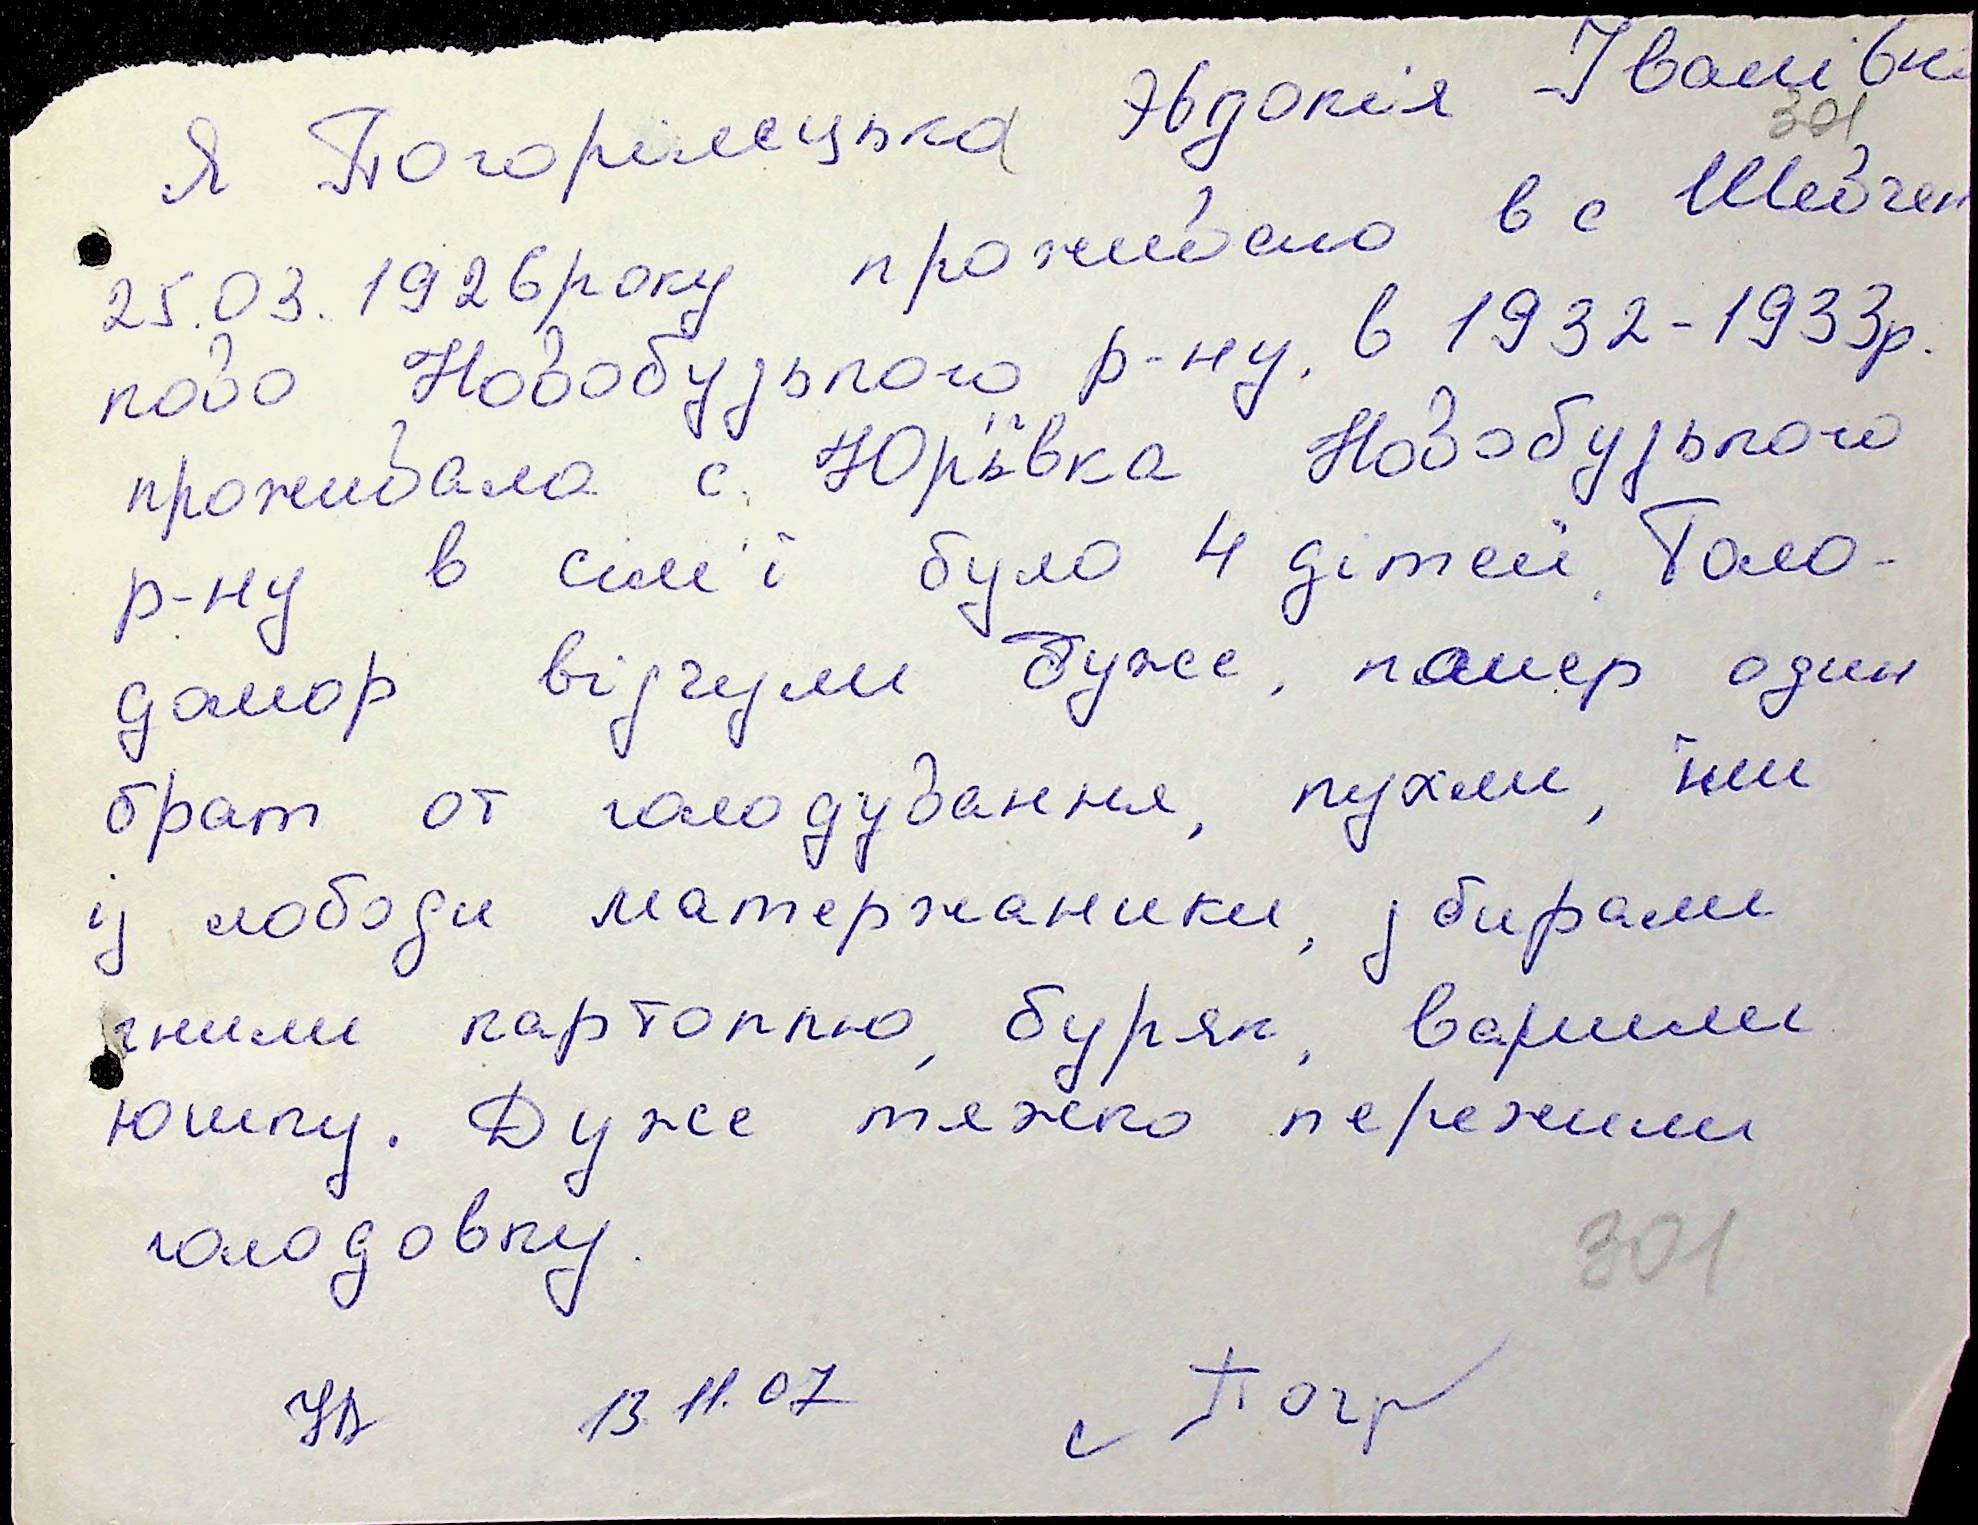 Я Погорілецька Євдокія Іванівна
301
25.03.1926 року проживаю в с Шевчен
ково Новобузького р-ну, в 1932-1933р.
проживала с. Юріївка Новобузького
р-ну в сім'ї було 4 дітей. Голо-
домор відчули дуже, помер один
брат от голодування, пухли, їли
із лободи маторжаники, збирали
гнили картоплю, буряк, варили
юшку. Дуже тяжко пережили
голодовку.
301
13.11.07 Погр